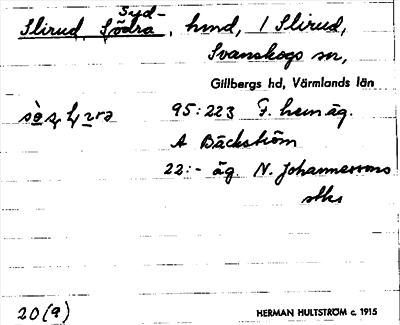 Slirud, Södra Syd-, hmd, i Slirud,
Svanskogs sn,
Gillbergs hd, Värmlands län
95:223 F. hemäg.
A Bäckström
22:- äg. N. Johannessons
20(9)
HERMAN HULTSTRÖM c. 1915